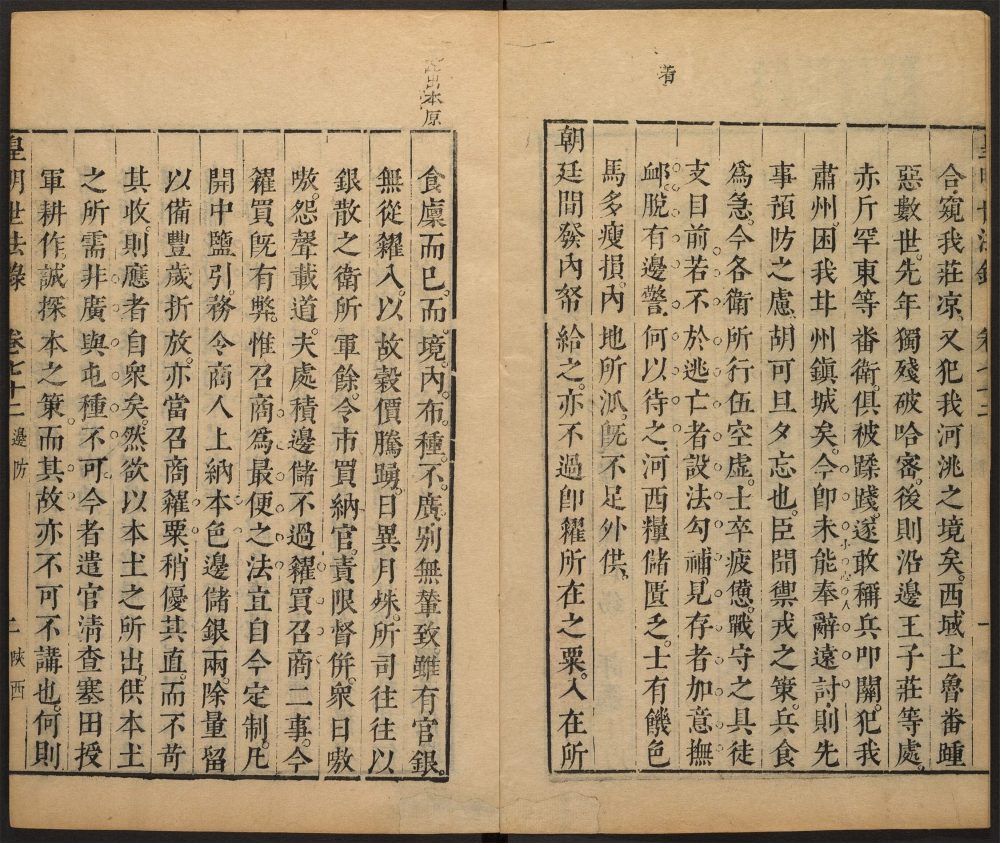 着
合窺我莊凉又犯我河洮之境矣西域土魯番踵
惡數世先年獨殘破哈宻後則沿邊王子莊等處
赤斤罕東等番衛俱被蹂踐遂敢稱兵叩關犯我
肅州困我甘州鎮城矣今卽未能奉辭遠討則先
事預防之慮胡可旦夕忘也臣聞禦戎之策兵食
爲急今各衛所行伍空虛士卒疲憊戰守之具徒
支目前若不於逃亡者設法勾補見存者加意撫
䘏脫有邊警何以待之河西糧儲匱乏士有饑色
馬多瘦損內地所派旣不足外供
朝廷間發內帑給之亦不過卽糴所在之粟入在所
本原
食廩而已而境內布種不廣别無輦致雖有官銀
無從糴入以故穀價騰踴日異月殊所司往往以
銀散之衛所軍餘令市買納官責限督併衆日嗷
嗷怨聲載道夫處積邊儲不過糴買召商二事今
糴買旣有弊惟召商爲最便之法宜自今定制凡
開中鹽引務令商人上納本色邊儲銀兩除量留
以備豐歲折放亦當召商糴粟稍優其直而不苛
其收則應者自衆矣然欲以本土之所出供本土
之所需非廣與屯種不可今者遣官淸查塞田授
軍耕作誠探本之策而其故亦不可不講也何則
皇明世法錄 卷七十二 邊防 二 陜西